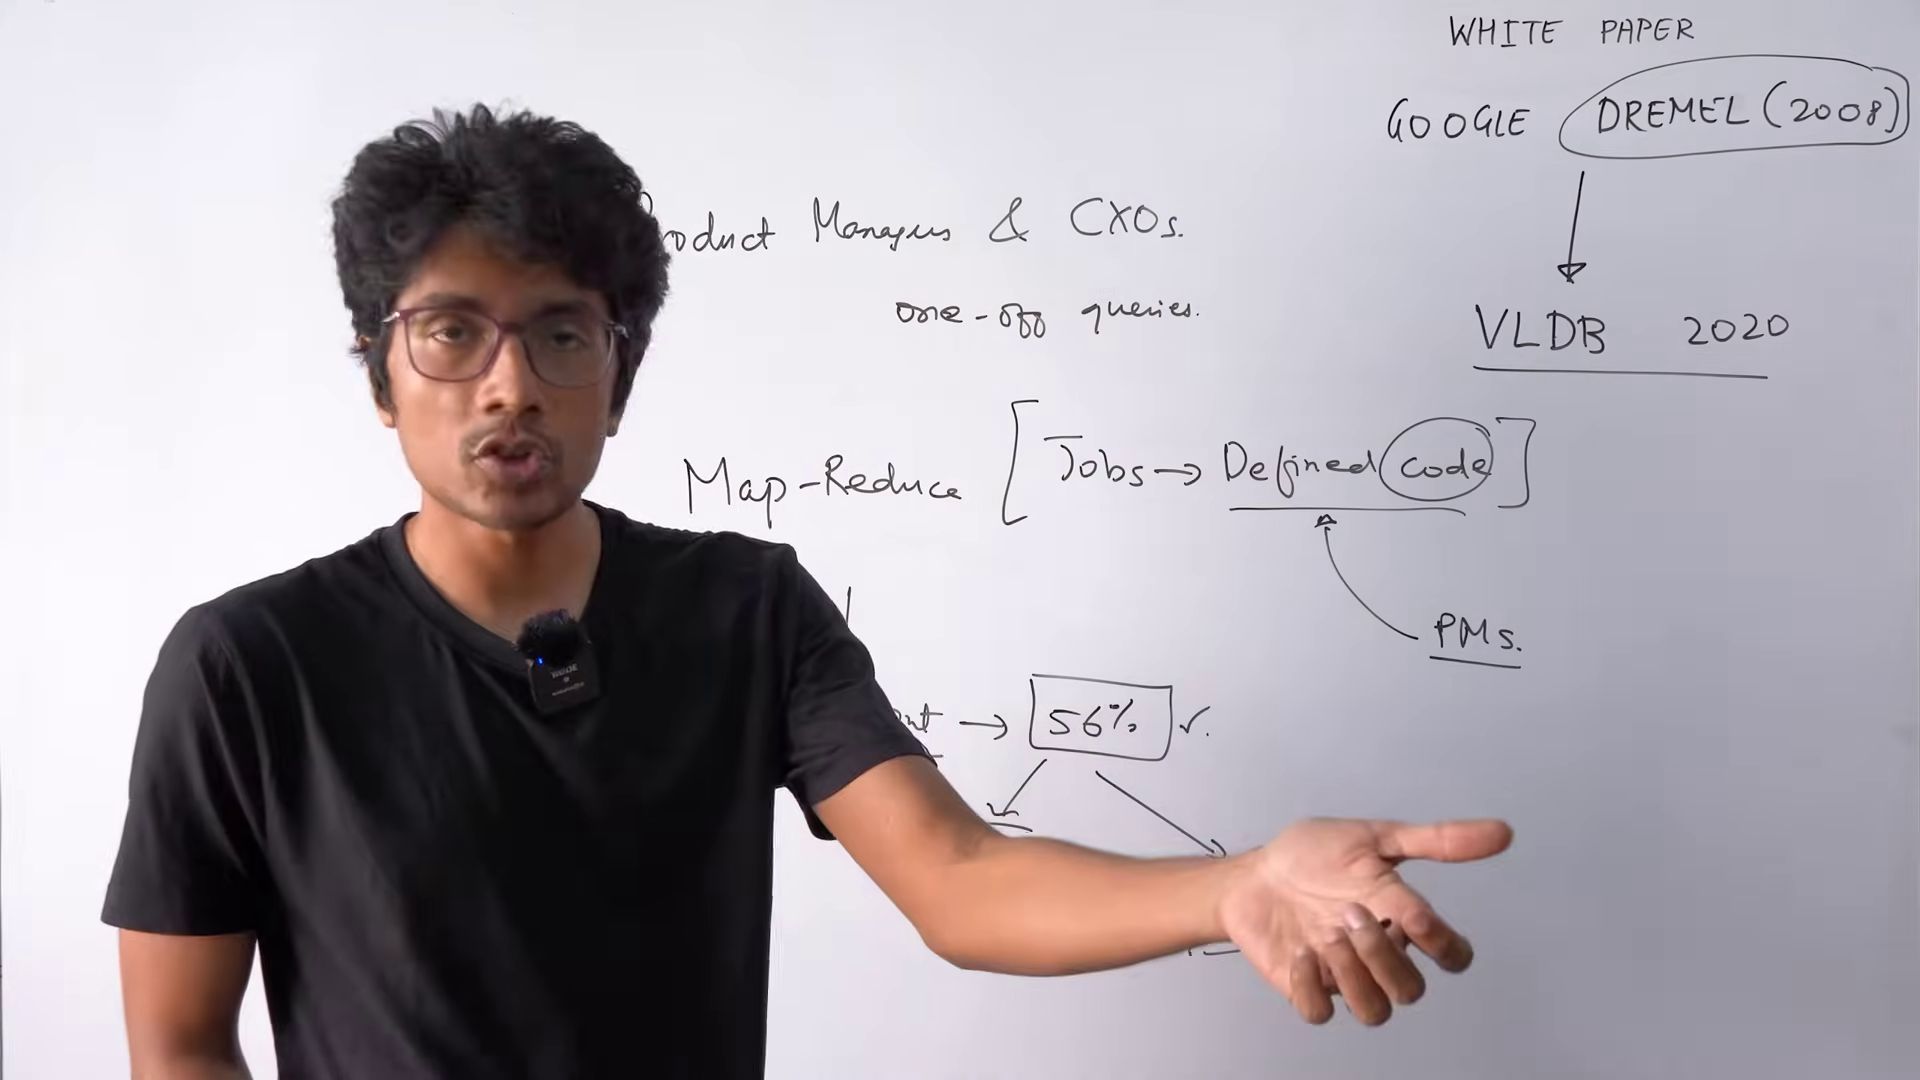 WHITE PAPER
GOOGLE DREMEL (2008)
Product Managers & CXOs.
one-off queries.
VLDB 2020
Map-Reduce [Jobs → Defined code]
PMs.
→ 56% ✓.